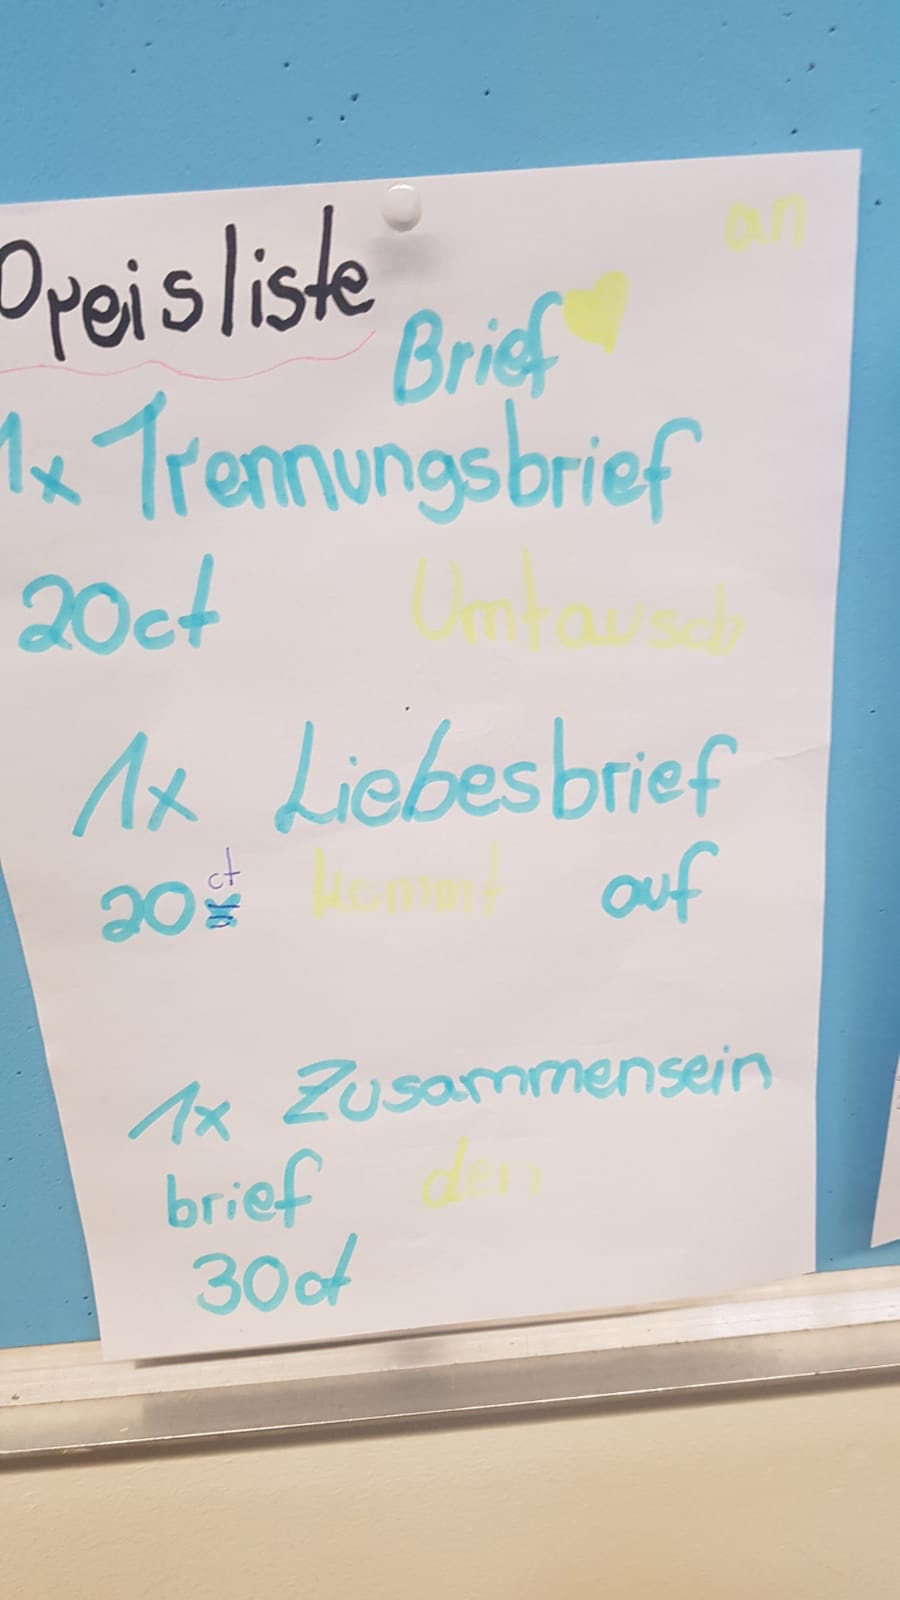 an
Preisliste
Brief
1x Trennungsbrief
20ct Umtausch
1x Liebesbrief
20 ct kommt auf
1x Zusammensein
brief den
30ct